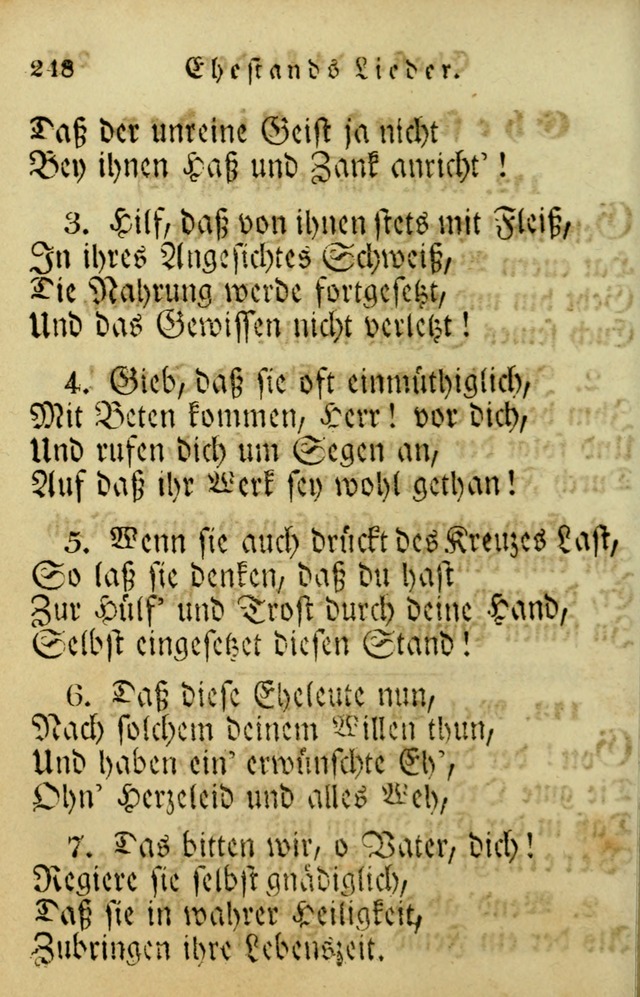 248 Ehestands Lieder.
Daß der unreine Geist ja nicht
Bey ihnen Haß und Zank anricht' !
3. Hilf, daß von ihnen stets mit Fleiß,
In ihres Angesichtes Schweiß,
Die Nahrung werde fortgesetzt,
Und das Gewissen nicht verletzt !
4. Gieb, daß sie oft einmüthiglich,
Mit Beten kommen, Herr ! vor dich,
Und rufen dich um Segen an,
Auf daß ihr Werk sey wohl gethan !
5. Wenn sie auch drückt des Kreuzes Last,
So laß sie denken, daß du hast
Zur Hülf' und Trost durch deine Hand,
Selbst eingesetzet diesen Stand !
6. Daß diese Eheleute nun,
Nach solchem deinem Willen thun,
Und haben ein' erwünschte Eh',
Ohn' Herzeleid und alles Weh,
7. Das bitten wir, o Vater, dich !
Regiere sie selbst gnädiglich,
Daß sie in wahrer Heiligkeit,
Zubringen ihre Lebenszeit.